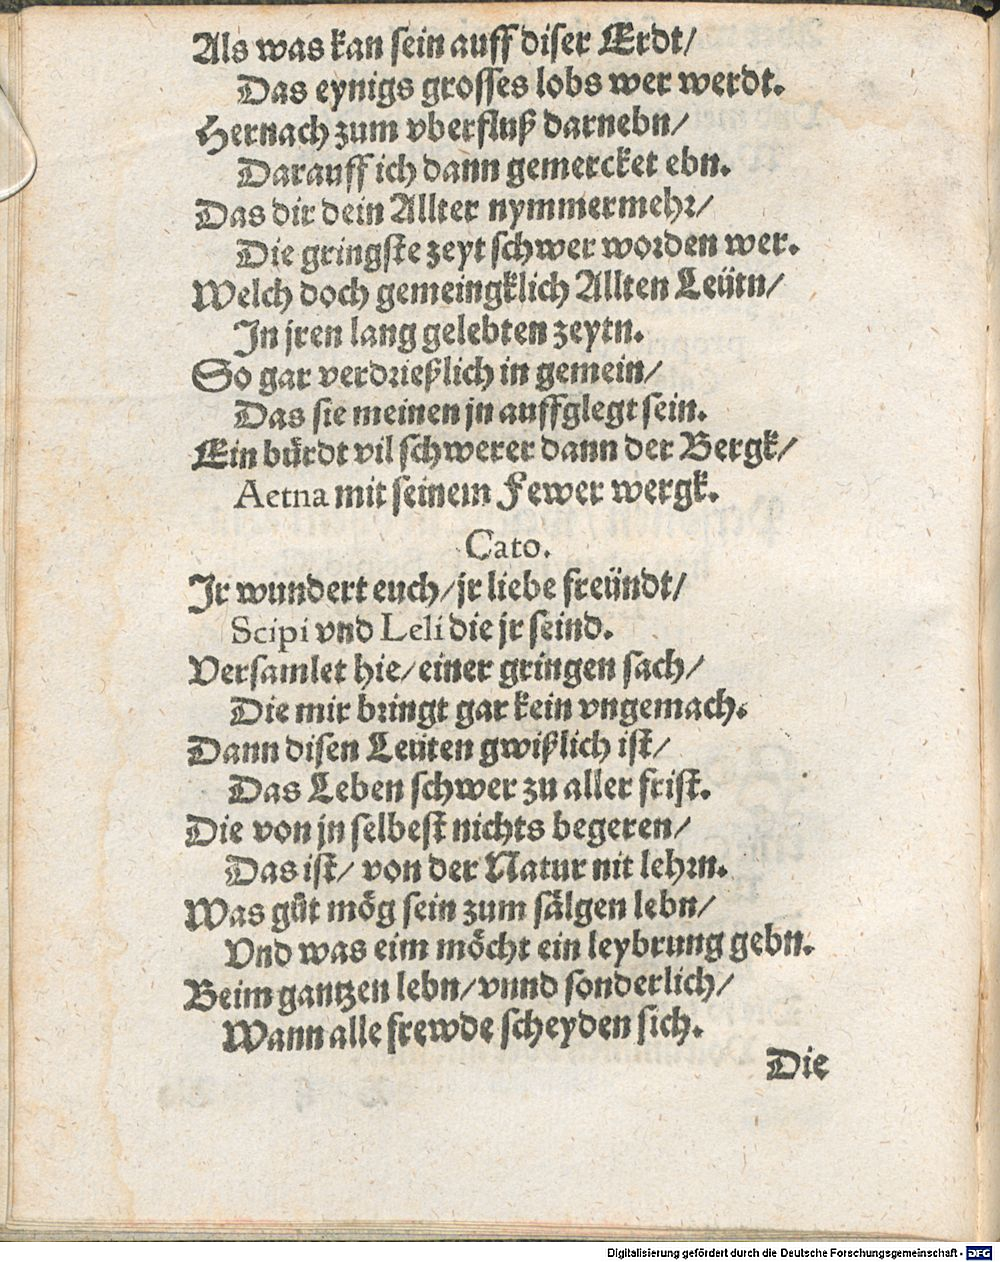 Als was kan sein auff diser Erdt/
Das eynigs grosses lobs wer werdt.
Hernach zum vberfluß darnebn/
Darauff ich dann gemercket ebn.
Das dir dein Allter nymmermehr/
Die gringste zeyt schwer worden wer.
Welch doch gemeingklich Allten Leütn/
In jren lang gelebten zeytn.
So gar verdrießlich in gemein/
Das sie meinen jn auffglegt sein.
Ein bürdt vil schwerer dann der Bergk/
Aetna mit seinem Fewer wergk.
Cato.
Ir wundert euch/ jr liebe freündt/
Scipi vnd Leli die jr seind.
Versamlet hie/ einer gringen sach/
Die mir bringt gar kein vngemach.
Dann disen Leüten gwißlich ist/
Das Leben schwer zu aller frist.
Die von jn selbest nichts begeren/
Das ist/ von der Natur nit lehrn.
Was gůt mög sein zum sälgen lebn/
Vnd was eim möcht ein leybrung gebn.
Beim gantzen lebn/ vnnd sonderlich/
Wann alle frewde scheyden sich.
Die
Digitalisierung gefördert durch die Deutsche Forschungsgemeinschaft - DFG